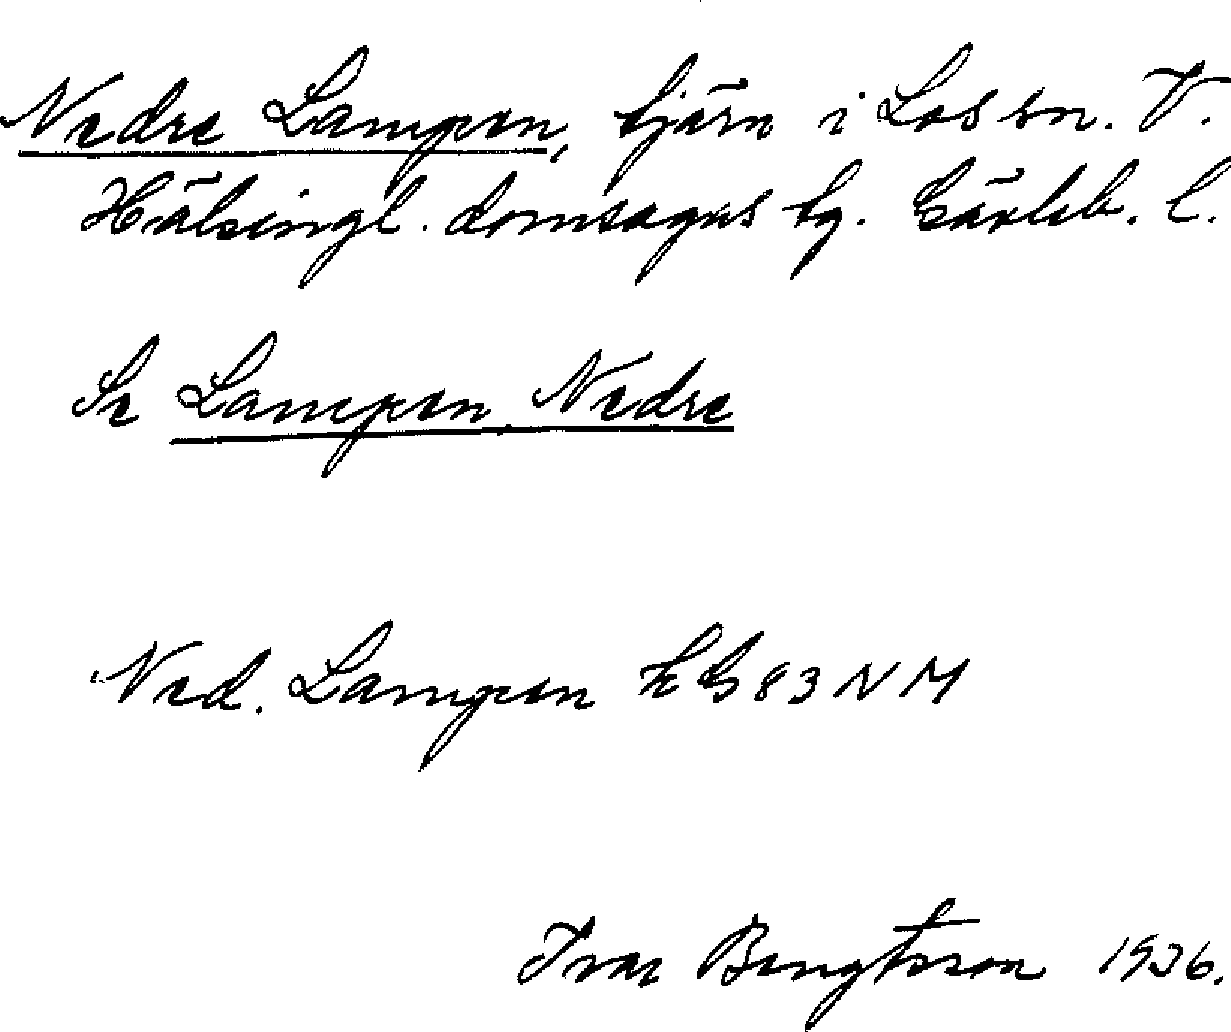 Nedre Lampen, tjärn i Los sn. V.
Hälsingl. domsagas tg. Gävleb. l.
Se Lampen, Nedre
Ned. Lampen EG 83 NM
Ivar Bengtsson 1936.